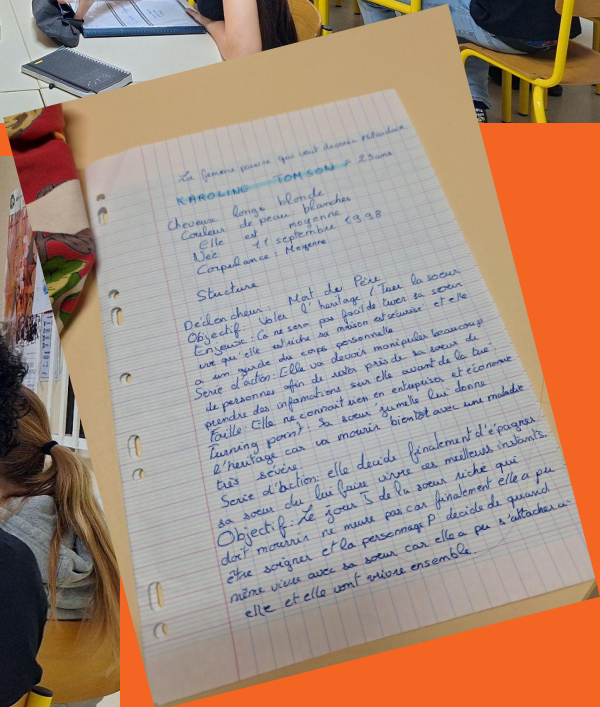 La femme pauvre qui veut devenir milliardaire.
KAROLINE TOMSON 23 ans
Cheveux longs blonde
Couleur de peau blanches
Elle est moyenne
Née 11 septembre 1998
Corpulance : Moyenne
Structure
Déclencheur : Mort du Père
Objectif : Voler l'heritage / Tuer la soeur
Enjeux : Ca ne sera pas facil de tuer sa soeur
vue qu'elle est riche sa maison est sécurisé et elle
a un garde du corps personnelle
Serie d'action : Elle va devoir manipuler beaucoup
de personnes afin de rester près de sa soeur de
prendre des infamations sur elle avant de la tué
Faille : Elle ne connait rien en entreprises et économie
Turning point : Sa soeur jumelle lui donne
l'heritage car va mourir bientôt avec une maladie
très sévère.
Serie d'action : elle decide finalement d'épagner
sa soeur du lui faire vivre ces meilleurs instants.
Objectif : Le jour J de la soeur riche qui
doit mourrir ne meure pas car finalement elle a pu
être soigner et la personnage P. decide de quand
même vivre avec sa soeur car elle a pu s'attacher a
elle et elle vont vivre ensemble.